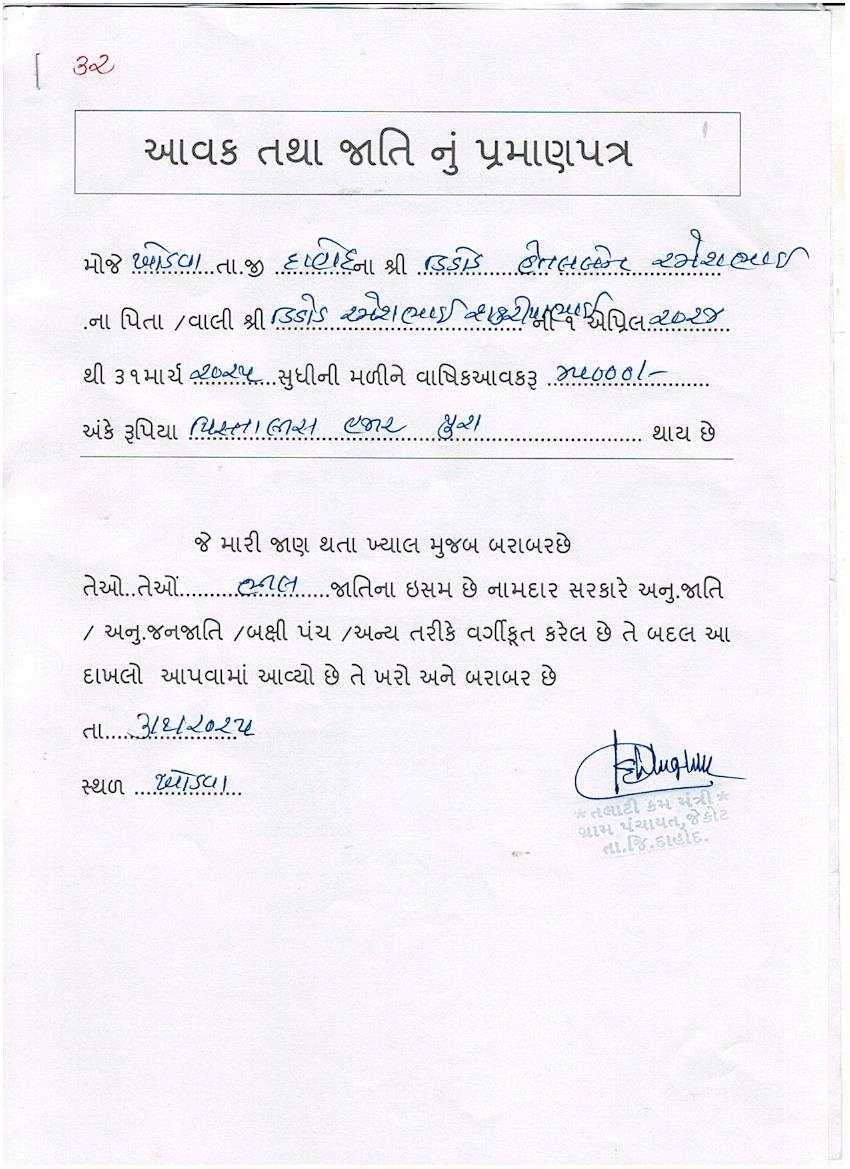 ૩૨
આવક તથા જાતિ નું પ્રમાણપત્ર
મોજે ખોડવા તા.જી દાહોદના શ્રી ડિંડોડ હેતલબેન રમેશભાઈ
.ના પિતા /વાલી શ્રી ડિંડોડ રમેશભાઈ ની ૧ એપ્રિલ ૨૦૨૪
થી ૩૧માર્ચ ૨૦૨૫ સુધીની મળીને વાષિકઆવકરૂ ૪૫૦૦૦/-
અંકે રૂપિયા પિસ્તાલીસ હજાર પુરા થાય છે
જે મારી જાણ થતા ખ્યાલ મુજબ બરાબરછે
તેઓ..તેઓં..........ભીલ.....જાતિના ઇસમ છે નામદાર સરકારે અનુ.જાતિ
/ અનુ.જનજાતિ /બક્ષી પંચ /અન્ય તરીકે વર્ગીકૃત કરેલ છે તે બદલ આ
દાખલો આપવામાં આવ્યો છે તે ખરો અને બરાબર છે
તા.....૩/૬/૨૦૨૫
સ્થળ ખોડવા
*તલાટી કમ મંત્રી*
ગ્રામ પંચાયત,જેકોટ
તા.જિ.દાહોદ.